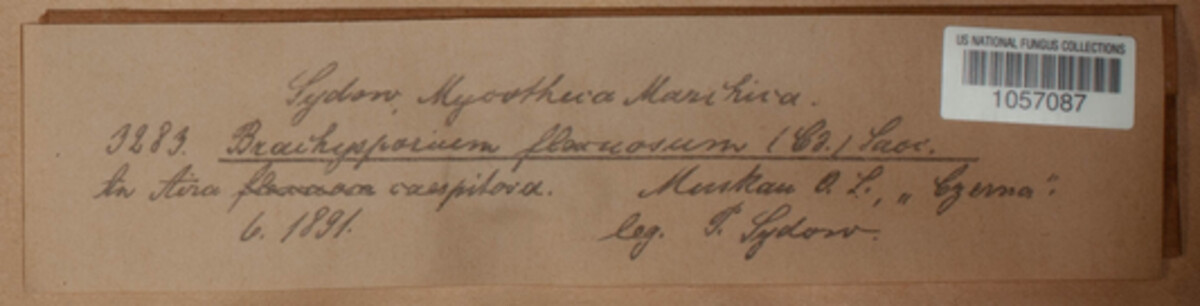 US NATIONAL FUNGUS COLLECTIONS
1057087
Sydow, Mycotheca Marchica.
3283. Brachysporium flexuosum (Cd.) Sacc.
In Aira flexuosa caespitosa. Muskau O. L., „Czerna".
6. 1891. leg. P. Sydow.